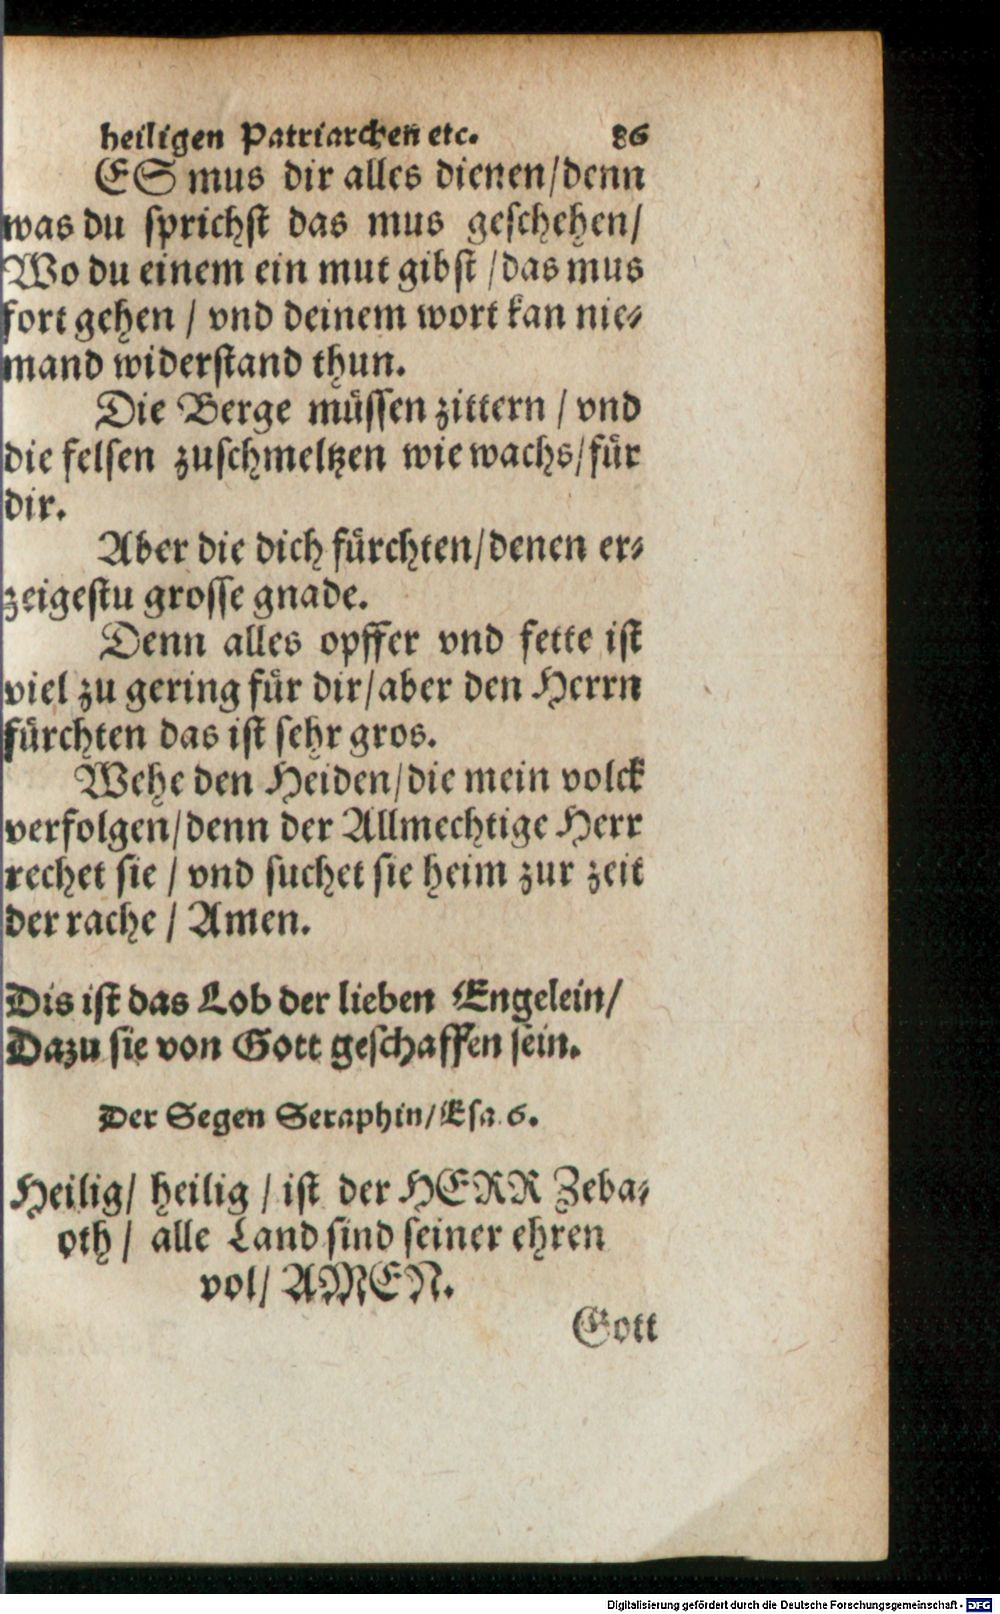 heiligen Patriarchen etc. 86
ES mus dir alles dienen/denn
was du sprichst das mus geschehen/
Wo du einem ein mut gibst /das mus
fort gehen / vnd deinem wort kan nie⸗
mand widerstand thun.
Die Berge müssen zittern / vnd
die felsen zuschmeltzen wie wachs/für
dir.
Aber die dich fürchten/denen er⸗
zeigestu grosse gnade.
Denn alles opffer vnd fette ist
viel zu gering für dir/aber den Herrn
fürchten das ist sehr gros.
Wehe den Heiden/die mein volck
verfolgen/denn der Allmechtige Herr
rechet sie / vnd suchet sie heim zur zeit
der rache / Amen.
Dis ist das Lob der lieben Engelein/
Dazu sie von Gott geschaffen sein.
Der Segen Seraphin/Esa. 6.
Heilig/ heilig / ist der HERR Zeba⸗
oth / alle Land sind seiner ehren
vol/ AMEN.
Gott
Digitalisierung gefördert durch die Deutsche Forschungsgemeinschaft - DFG